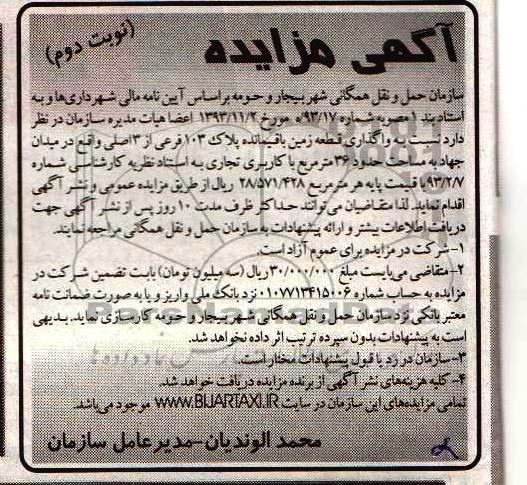 آگهی مزایده
(نوبت دوم)
سازمان حمل و نقل همگانی شهر بیجار و حومه براساس آیین نامه مالی شهرداری‌ها و به
استناد بند ۱ مصوبه شماره ۹۳/۱۷/ه مورخ ۱۳۹۳/۱۱/۲ اعضا هیات مدیره سازمان در نظر
دارد نسبت به واگذاری قطعه زمین باقیمانده پلاک ۱۰۳ فرعی از ۳ اصلی واقع در میدان
جهاد به مساحت حدود ۳۶ مترمربع با کاربری تجاری به استناد نظریه کارشناسی شماره
۹۳/۲/۷ با قیمت پایه هر مترمربع ۲۸/۵۷۱/۴۲۸ ریال از طریق مزایده عمومی و نشر آگهی
اقدام نماید. لذا متقاضیان می‌توانند حداکثر ظرف مدت ۱۰ روز پس از نشر آگهی جهت
دریافت اطلاعات بیشتر و ارائه پیشنهادات به سازمان حمل و نقل همگانی مراجعه نمایند.
۱-شرکت در مزایده برای عموم آزاد است.
۲-متقاضی می‌بایست مبلغ ۳۰/۰۰۰/۰۰۰ ریال (سه میلیون تومان) بابت تضمین شرکت در
مزایده به حساب شماره ۰۱۰۷۷۱۳۴۱۵۰۰۶ نزد بانک ملی واریز و یا به صورت ضمانت نامه
معتبر بانکی نزد سازمان حمل و نقل همگانی شهر بیجار و حومه کارسازی نماید. بدیهی
است به پیشنهادات بدون سپرده ترتیب اثر داده نخواهد شد.
۳-سازمان در رد یا قبول پیشنهادات مختار است.
۴-کلیه هزینه‌های نشر آگهی از برنده مزایده دریافت خواهد شد.
تمامی مزایده‌های این سازمان در سایت WWW.BIJARTAXI.IR موجود می‌باشد.
محمد الوندیان-مدیرعامل سازمان